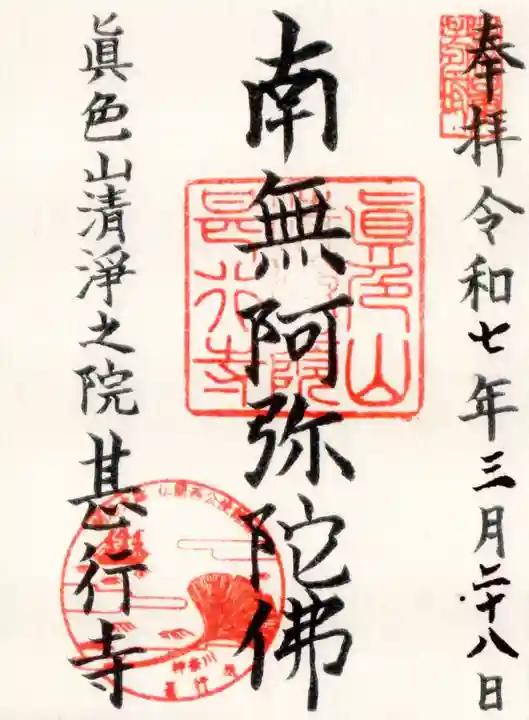 奉拝 令和七年三月二十八日
南無阿弥陀佛
眞色山清淨之院 甚行寺
眞色山
甚行寺
神奈川
甚行寺